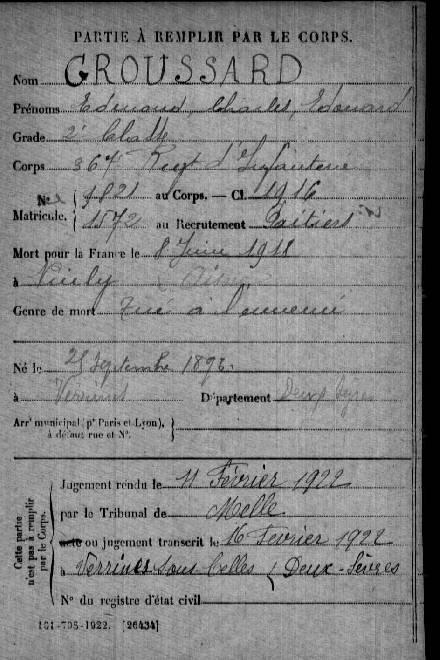 PARTIE À REMPLIR PAR LE CORPS.
Nom GROUSSARD
Prénoms Edmond, Charles, Edouard
Grade 2e Classe
Corps 367e Regt d'Infanterie
N° 1821 au Corps. — Cl. 1916
Matricule. 1572 au Recrutement Poitiers
Mort pour la France le 8 Juin 1918
à Vuilly (Aisne
Genre de mort Tué à l'ennemi
Né le 25 Septembre 1896
à Verrines Département Deux Sèvres
Arrt municipal (pr Paris et Lyon),
à défaut rue et N°.
Cette partie
n'est pas à remplir
par le Corps.
Jugement rendu le 11 Février 1922
par le Tribunal de Melle
ou jugement transcrit le 16 Fevrier 1922
à Verrines sous Celles (Deux-Sèvres
N° du registre d'état civil
101-708-1922. [26434]